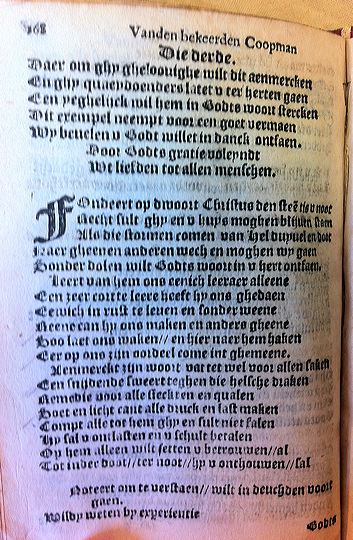 168
Vanden bekeerden Coopman
Die derde.
Daer om ghy gheloouighe wilt dit aenmercken
En ghy quaeydoenders latet v ter herten gaen
Een yeghelijck wil hem in Godts woort stercken
Dit exempel neempt voor een goet vermaen
Wy beuelen v Godt willet in danck ontfaen.
Door Godts gratie voleyndt
Wt liefden tot allen menschen.
FOndeert op dwoort Christus den steē tis v noot
Recht sult ghy en v huys moghen blijuen staen
Als die stormen comen van Hel duyuel en doot
Naer gheenen anderen wech en moghen wy gaen
Sonder dolen wilt Godts woort in v hert ontfaen.
Leert van hem ons eenich leeraer alleene
Een zeer corte leere heeft hy ons ghedaen
Eewich in rust te leuen en sonder weene
Reene can hy ons maken en anders gheene
Hoe laet ons waken// en hier naer hem haken
Eer op ons zijn oordeel come int ghemeene.
Aenmerckt zijn woort vattet wel voor allen saken
Een snijdende sweert teghen die helsche draken
Remedie voor alle sieckten en qualen
Soet en licht cant alle druck en last maken
Compt alle tot hem ghy en sult niet falen
Hy sal v ontlasten en v schult betalen
Op hem alleen wilt setten v betrouwen//al
Tot inder doot//ter noot//hy v onthouwen//sal
Noteert om te verstaen// wilt in deuchden voort
gaen.
Wildy weten by experientie
Godts